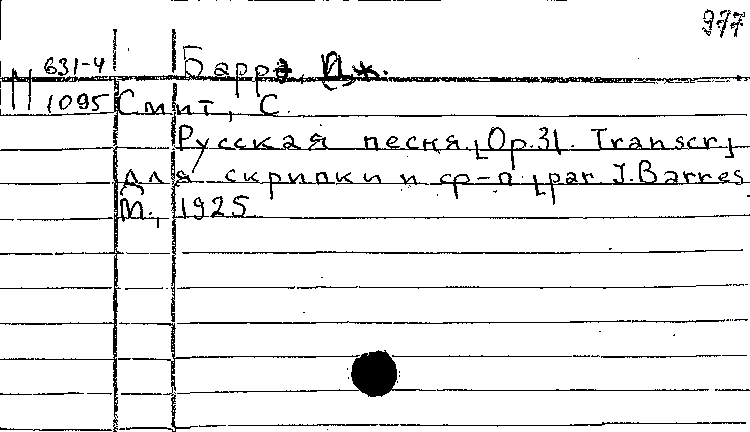 977
М 631-4
1095
Баррэ, Дж.
Смит, С.
Русская песня [Op.31. Transcr]
для скрипки и ср-п [par J.Barres
М., 1925